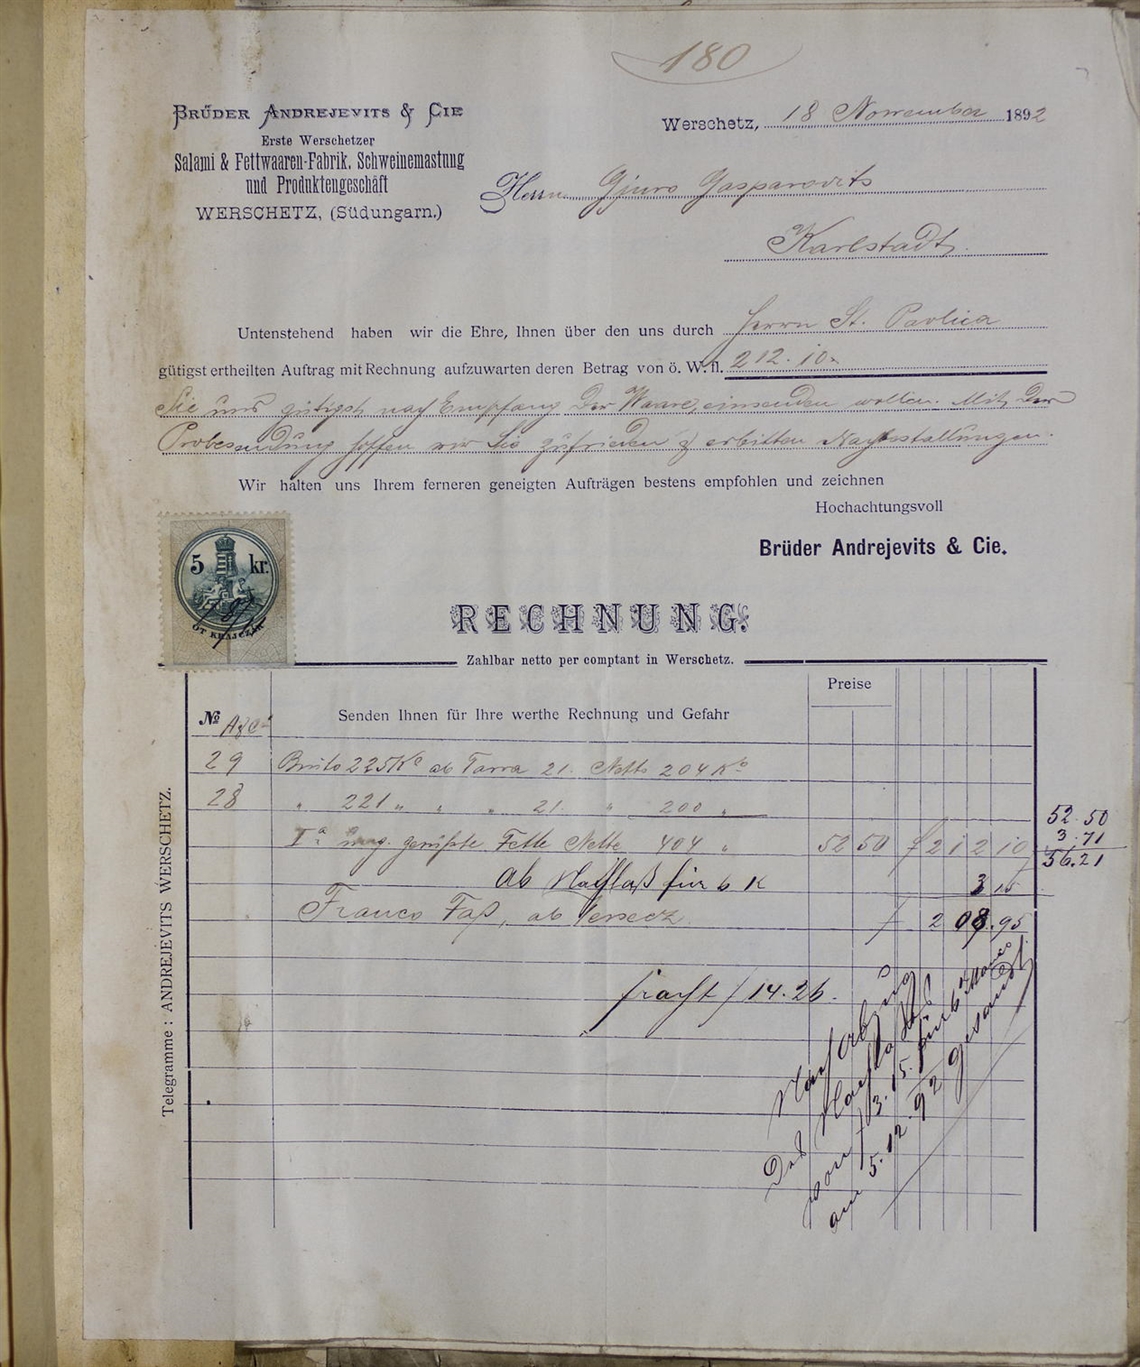 180
BRÜDER ANDREJEVITS & CIE
Erste Werschetzer
Salami & Fettwaaren-Fabrik, Schweinemastung
und Produktengeschäft
WERSCHETZ, (Südungarn.)
Werschetz, 18 November 1892
Herrn Gjuro Gasparovits
Karlstadt
Untenstehend haben wir die Ehre, Ihnen über den uns durch Herrn St. Pavlica
gütigst ertheilten Auftrag mit Rechnung aufzuwarten deren Betrag von ö. W. fl. 212.10
Sie uns gütigst nach Empfang der Waare, einsenden wollen. Mit der
Probesendung hoffen wir Sie zufrieden & erbitten Nachbestallungen.
Wir halten uns Ihrem ferneren geneigten Aufträgen bestens empfohlen und zeichnen
Hochachtungsvoll
Brüder Andrejevits & Cie.
5 kr.
ÖT KRAJCZÁR
RECHNUNG.
Zahlbar netto per comptant in Werschetz.
Preise
№ A&C Senden Ihnen für Ihre werthe Rechnung und Gefahr
29 Bruto 225 Ko ab Tarra 21. Netto 204 Ko
28 " 221 " " " 21. " 200 "
52.50
3.71
Ia ung. Fette Netto 404 " 52 50 f 212 10
56.21
ab Nachlaß für 6 K 3 15
Franco Faß, ab Versecz f 208.95
fracht f 14.26.
Nachlaß
von f 3.15. für 6
am 5.12.92 gesandt
Telegramme: ANDREJEVITS WERSCHETZ.